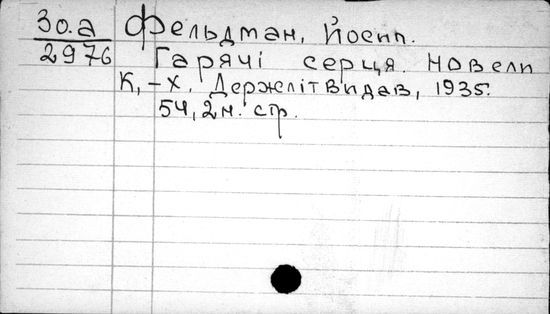 Зо.а Фельдман, Йосип.
2976 Гарячі серця. Новели
К,-Х. Держлітвидав, 1935.
54, 2н. стр.